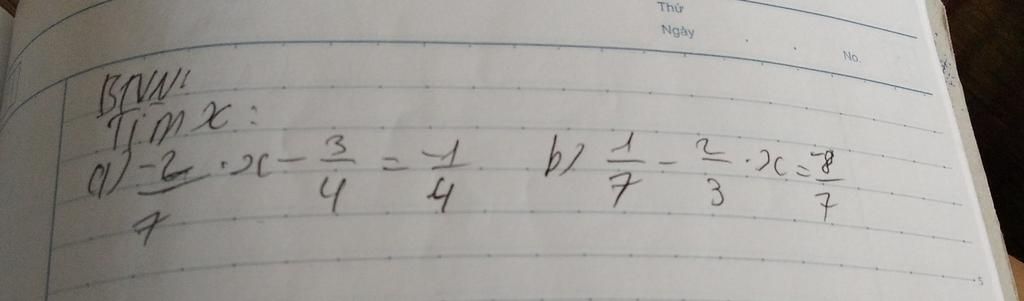 Thứ
Ngày
No.
BTVN:
Tìm x:
a) -2/7 . x - 3/4 = -1/4 b) 1/7 - 2/3 . x = -8/7
5